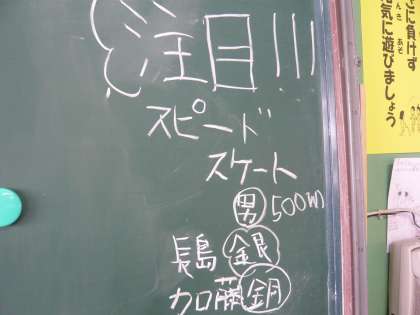 注目!!!
スピード
スケート
男 500m
長島 銀
加藤 銅
に負けず
気に遊びましょう